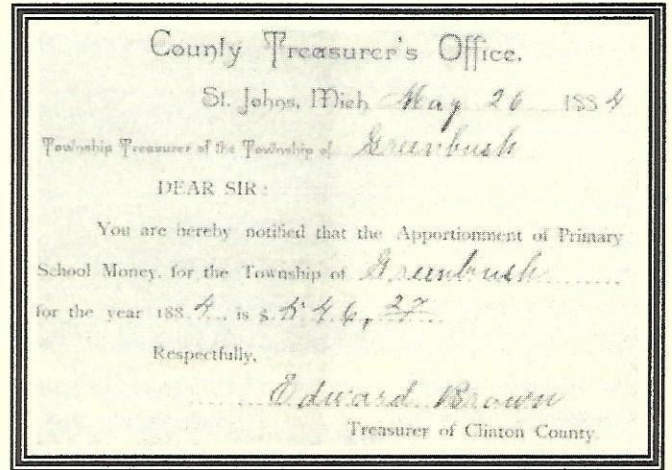 County Treasurer's Office.
St. Johns, Mich May 26 1884
Township Treasurer of the Township of Greenbush
DEAR SIR:
You are hereby notified that the Apportionment of Primary
School Money, for the Township of Greenbush
for the year 1884 is $546.27
Respectfully,
Edward Brown
Treasurer of Clinton County.